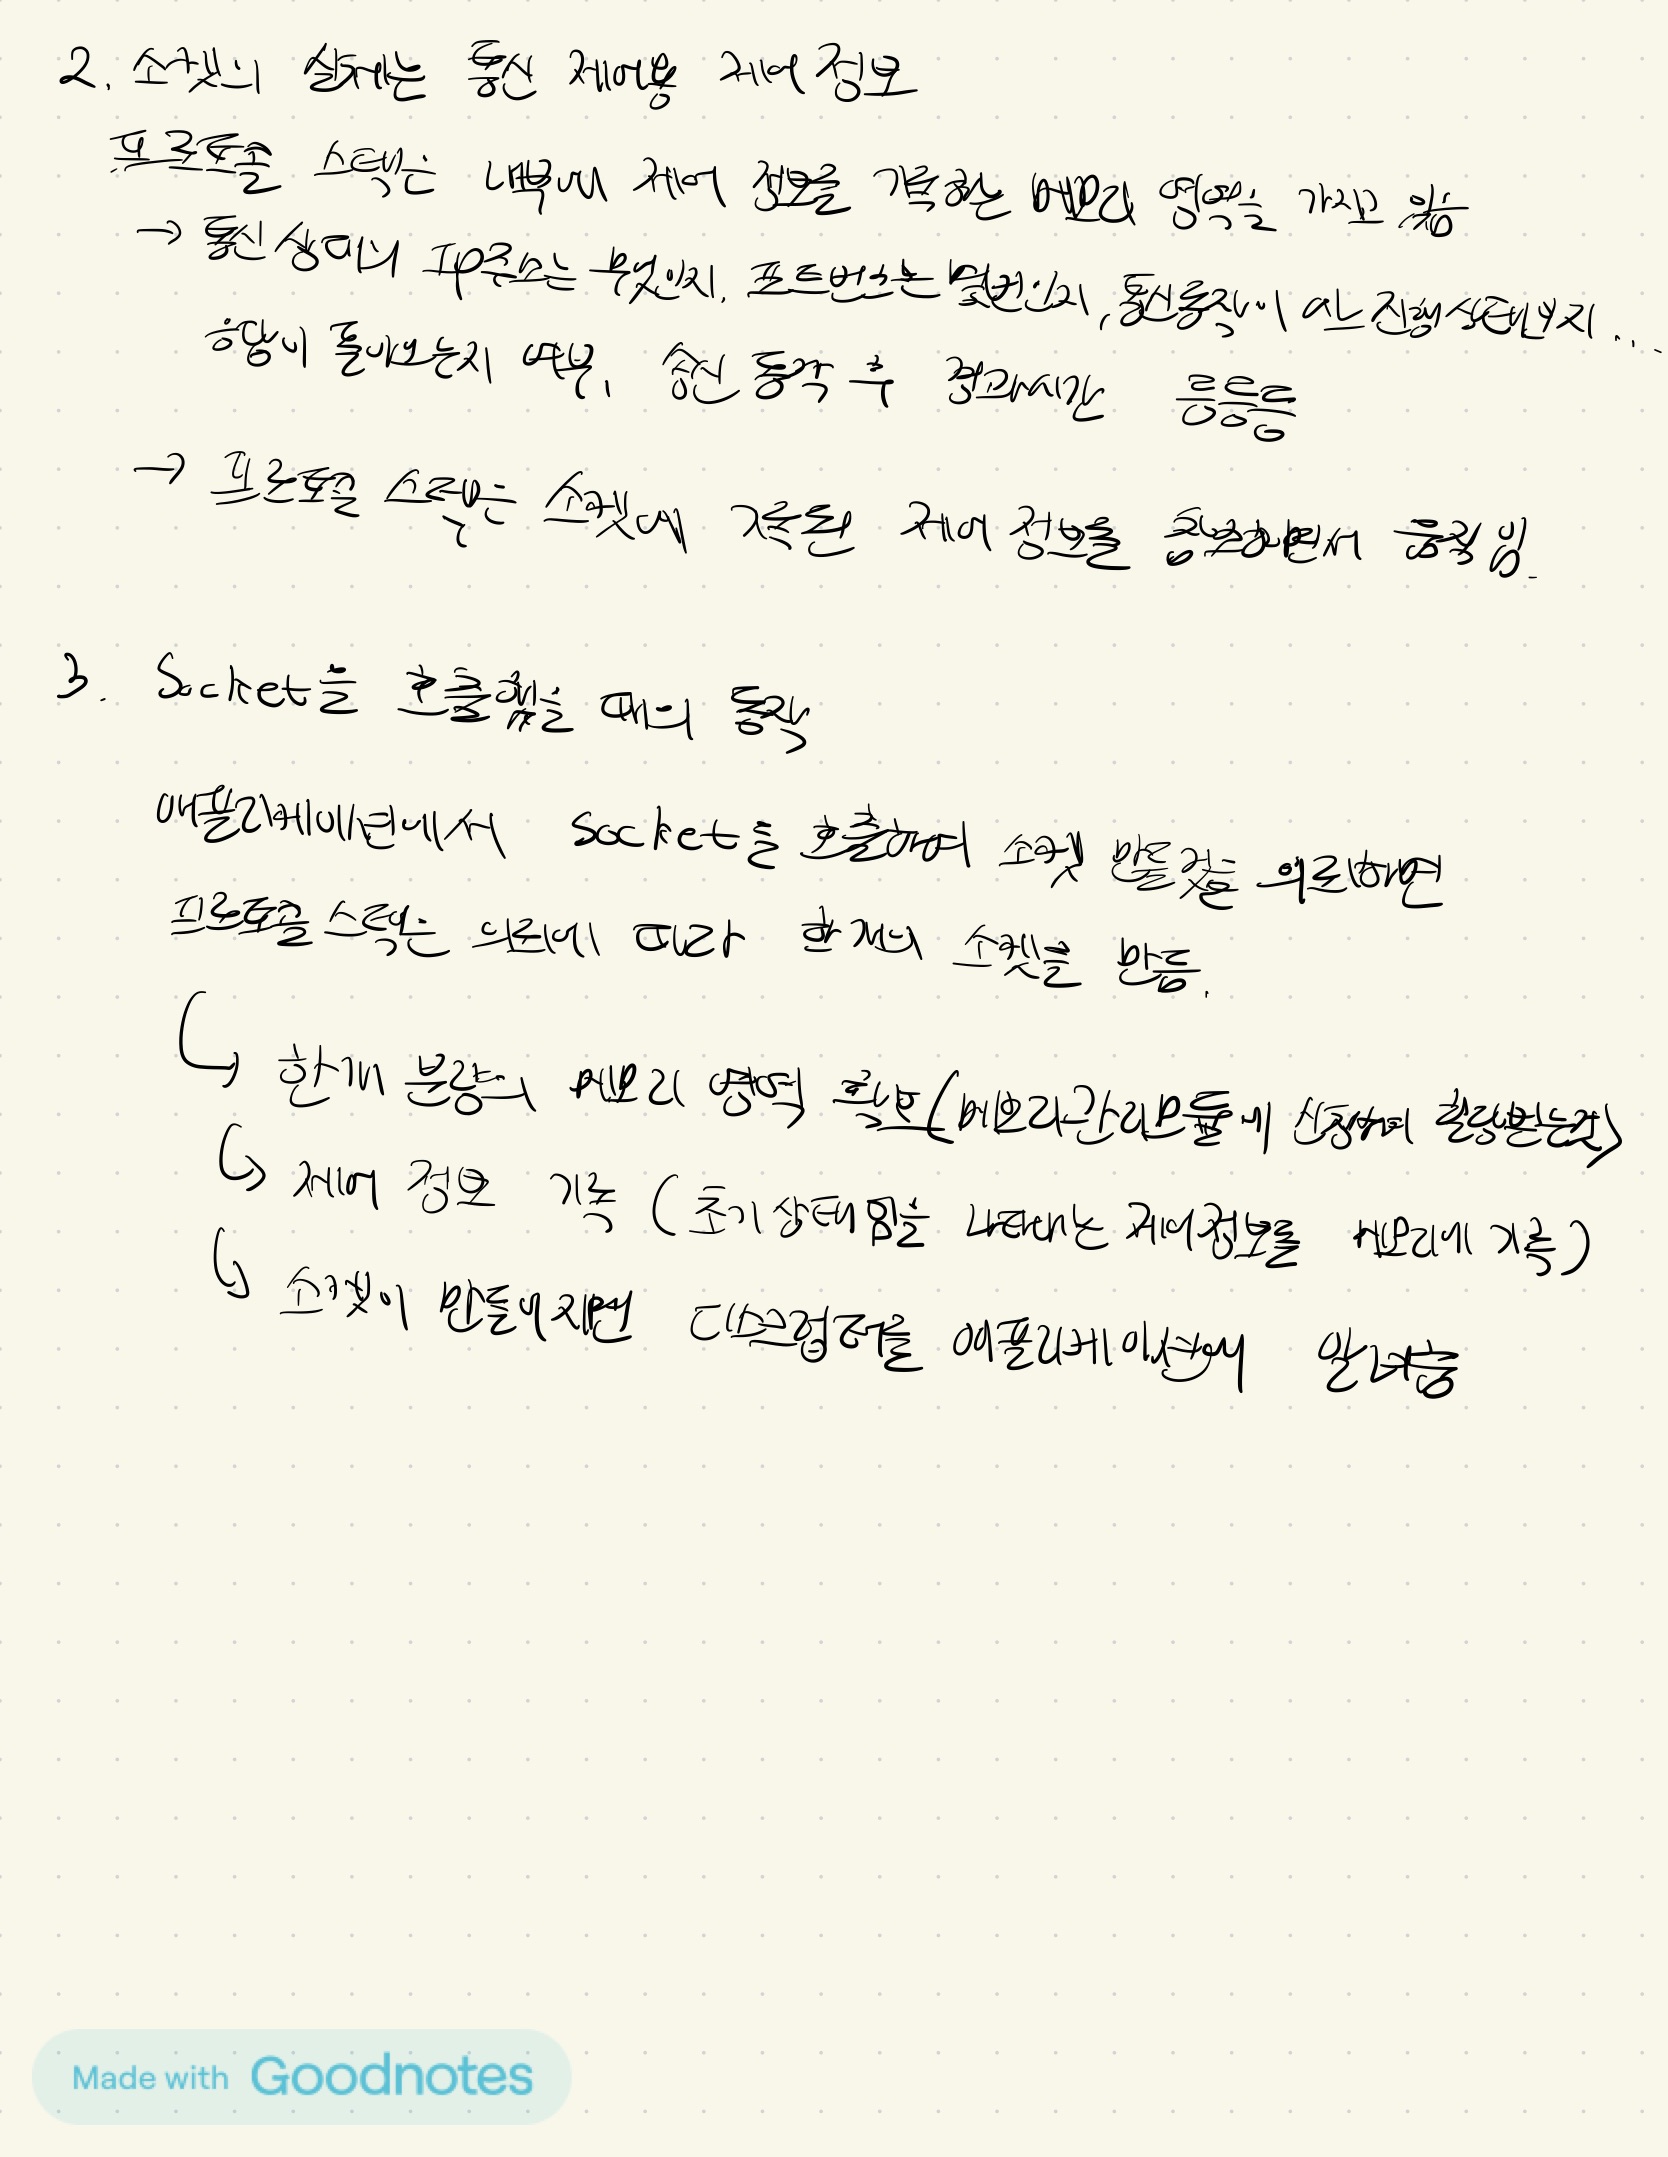 2. 소켓의 실체는 통신 제어용 제어 정보
프로토콜 스택은 내부에 제어 정보를 기록하는 메모리 영역을 가지고 있음
→ 통신 상대의 IP주소는 무엇인지, 포트번호는 몇번인지, 통신동작이 어느 진행상태인지...
응답이 돌아오는지 여부, 송신 동작 후 경과시간 등등등
→ 프로토콜 스택은 소켓에 기록된 제어 정보를 참조하면서 움직임.
3. Socket을 호출했을 때의 동작
애플리케이션에서 Socket을 호출하여 소켓 만들것을 의뢰하면
프로토콜 스택은 의뢰에 따라 한 개의 소켓을 만듬.
↳ 한개 분량의 메모리 영역 확보(메모리관리모듈에 신청하여 할당받는것)
↳ 제어 정보 기록 (초기상태임을 나타내는 제어정보를 메모리에 기록)
↳ 소켓이 만들어지면 디스크립터를 애플리케이션에 알려줌
Made with Goodnotes